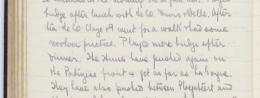 bridge after lunch with the CO, Innis & Belle. After
tea the CO Clegg & I went for a walk & had some
revolver practice. Played more bridge after
dinner. The Huns have pushed again on
the Portugese front & got as far as La Gorgue.
They have also pushed between Ploegsteert and